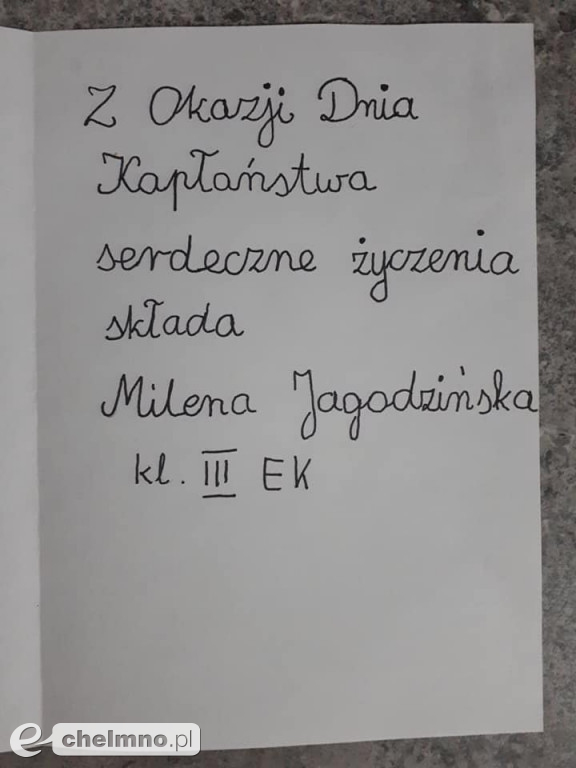 Z Okazji Dnia
Kapłaństwa
serdeczne życzenia
składa
Milena Jagodzińska
kl. III EK
e-chelmno.pl